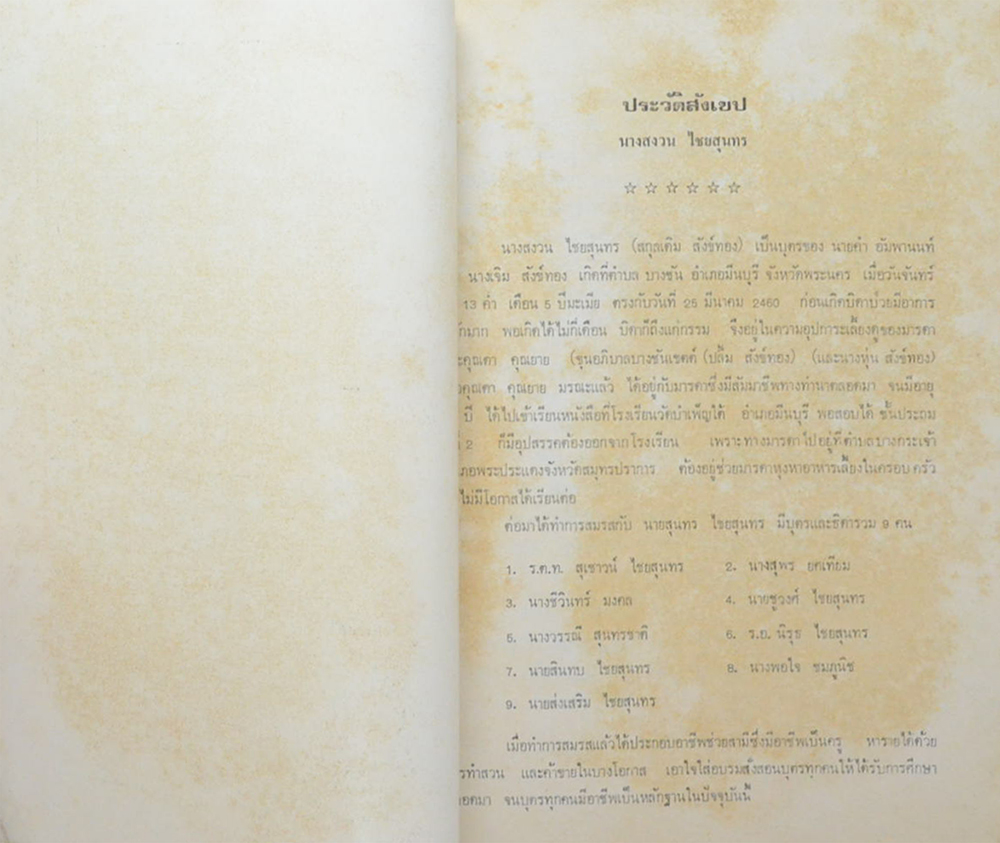 ประวัติสังเขป
นางสงวน ไชยสุนทร
☆ ☆ ☆ ☆ ☆ ☆
นางสงวน ไชยสุนทร (สกุลเดิม สังข์ทอง) เป็นบุตรของ นายคำ อัมพานนท์
นางเจิม สังข์ทอง เกิดที่ตำบล บางชัน อำเภอมีนบุรี จังหวัดพระนคร เมื่อวันจันทร์
13 ค่ำ เดือน 5 ปีมะเมีย ตรงกับวันที่ 25 มีนาคม 2460 ก่อนเกิดบิดาป่วยมีอาการ
มาก พอเกิดได้ไม่กี่เดือน บิดาก็ถึงแก่กรรม จึงอยู่ในความอุปการะเลี้ยงดูของมารดา
คุณตา คุณยาย (ขุนอภิบาลบางชันเขตต์ (ปลื้ม สังข์ทอง) (และนางหุ่น สังข์ทอง)
คุณตา คุณยาย มรณะแล้ว ได้อยู่กับมารดาซึ่งมีสัมมาชีพทางทำนาตลอดมา จนมีอายุ
ปี ได้ไปเข้าเรียนหนังสือที่โรงเรียนวัดบำเพ็ญใต้ อำเภอมีนบุรี พอสอบได้ ชั้นประถม
2 ก็มีอุปสรรคต้องออกจากโรงเรียน เพราะทางมารดาไปอยู่ที่ตำบลบางกระเจ้า
ภอพระประแดงจังหวัดสมุทรปราการ ต้องอยู่ช่วยมารดาหุงหาอาหารเลี้ยงในครอบครัว
ไม่มีโอกาสได้เรียนต่อ
ต่อมาได้ทำการสมรสกับ นายสุนทร ไชยสุนทร มีบุตรและธิดารวม 9 คน
1. ร.ต.ท. สุเชาวน์ ไชยสุนทร 2. นางสุพร ยศเทียม
3. นางชีวินทร์ มงคล 4. นายชูวงศ์ ไชยสุนทร
5. นางวรรณี สุนทรชาติ 6. ร.อ. นิรุธ ไชยสุนทร
7. นายสินทบ ไชยสุนทร 8. นางพอใจ ชมภูนิช
9. นายส่งเสริม ไชยสุนทร
เมื่อทำการสมรสแล้วได้ประกอบอาชีพช่วยสามีซึ่งมีอาชีพเป็นครู หารายได้ด้วย
รทำสวน และค้าขายในบางโอกาส เอาใจใส่อบรมสั่งสอนบุตรทุกคนให้ได้รับการศึกษา
ลอดมา จนบุตรทุกคนมีอาชีพเป็นหลักฐานในปัจจุบันนี้